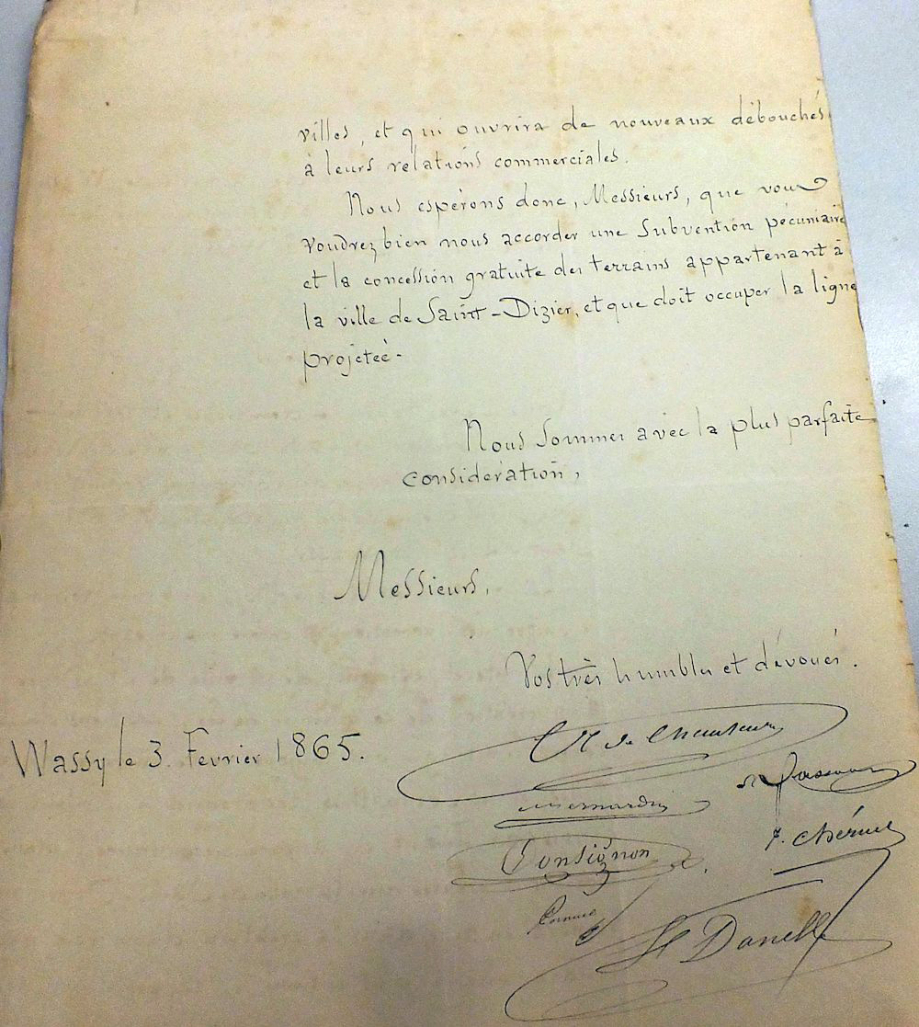 villes, et qui ouvrira de nouveaux débouchés
à leurs relations commerciales.
Nous espérons donc, Messieurs, que vous
voudrez bien nous accorder une Subvention pécuniaire
et la concession gratuite des terrains appartenant à
la ville de Saint-Dizier, et que doit occuper la ligne
projetée.
Nous Sommes avec la plus parfaite
considération,
Messieurs,
Vos très humbles et dévoués.
Wassy le 3. Février 1865.
Consignon
H Danelle